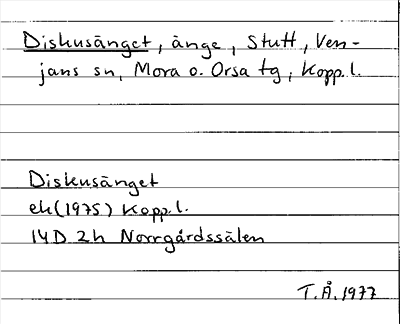 Diskusänget, änge, Stutt, Ven-
jans sn, Mora o. Orsa tg, Kopp. l.
Diskusänget
ek (1975) Kopp. l.
14D 2h Norrgårdssälen
T.Å. 1977